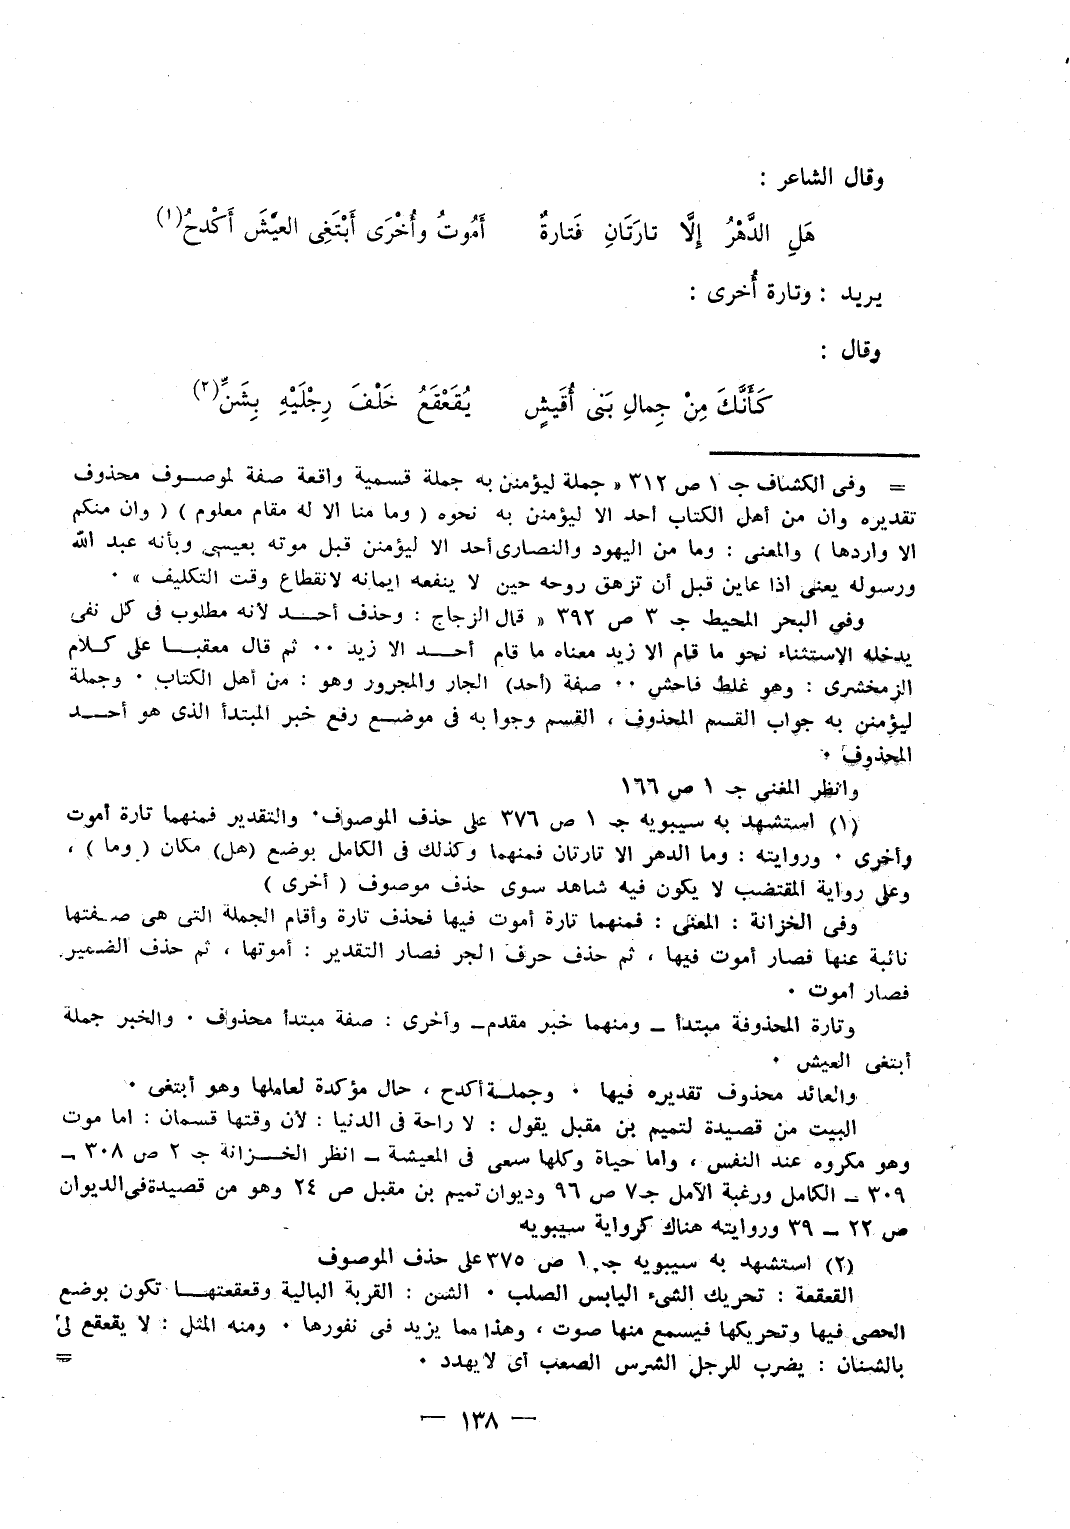 وقال الشاعر :
هَلِ الدَّهْرُ إِلَّا تارَتَانِ فَتارةٌ أَمُوتُ وأُخْرَى أَبْتَغِى العيْشَ أَكْدحُ(١)
يريد : وتارة أُخرى :
وقال :
كَأَنَّكَ مِنْ جِمالِ بَنى أُقَيشٍ يُقَعْقَعُ خَلْفَ رِجْلَيْهِ بِشَنِّ(٢)
= وفى الكشاف جـ ١ ص ٣١٢ « جملة ليؤمنن به جملة قسمية واقعة صفة لموصوف محذوف
تقديره وان من أهل الكتاب أحد الا ليؤمنن به نحوه ( وما منا الا له مقام معلوم ) ( وان منكم
الا واردها ) والمعنى : وما من اليهود والنصارى أحد الا ليؤمنن قبل موته بعيسى وبأنه عبد الله
ورسوله يعنى اذا عاين قبل أن تزهق روحه حين لا ينفعه ايمانه لانقطاع وقت التكليف » ٠
وفي البحر المحيط جـ ٣ ص ٣٩٢ « قال الزجاج : وحذف أحد لأنه مطلوب فى كل نفى
يدخله الاستثناء نحو ما قام الا زيد معناه ما قام أحد الا زيد ٠٠ ثم قال معقبا على كلام
الزمخشرى : وهو غلط فاحش ٠٠ صفة (أحد) الجار والمجرور وهو : من أهل الكتاب ٠ وجملة
ليؤمنن به جواب القسم المحذوف ، القسم وجوابه فى موضع رفع خبر المبتدأ الذى هو أحد
المحذوف ٠
وانظر المغنى جـ ١ ص ١٦٦
(١) استشهد به سيبويه جـ ١ ص ٣٧٦ على حذف الموصوف ٠ والتقدير فمنهما تارة أموت
وأخرى ٠ وروايته : وما الدهر الا تارتان فمنهما وكذلك فى الكامل بوضع (هل) مكان ( وما ) ،
وعلى رواية المقتضب لا يكون فيه شاهد سوى حذف موصوف ( أخرى )
وفى الخزانة : المعنى : فمنهما تارة أموت فيها فحذف تارة وأقام الجملة التى هى صفتها
نائبة عنها فصار أموت فيها ، ثم حذف حرف الجر فصار التقدير : أموتها ، ثم حذف الضمير
فصار أموت ٠
وتارة المحذوفة مبتدأ – ومنهما خبر مقدم– وأخرى : صفة مبتدأ محذوف ٠ والخبر جملة
أبتغى العيش ٠
والعائد محذوف تقديره فيها ٠ وجملة أكدح ، حال مؤكدة لعاملها وهو أبتغى ٠
البيت من قصيدة لتميم بن مقبل يقول : لا راحة فى الدنيا : لأن وقتها قسمان : اما موت
وهو مكروه عند النفس ، واما حياة وكلها سعى فى المعيشة – انظر الخزانة جـ ٢ ص ٣٠٨ –
٣٠٩ – الكامل ورغبة الآمل جـ٧ ص ٩٦ وديوان تميم بن مقبل ص ٢٤ وهو من قصيدة فى الديوان
ص ٢٢ – ٣٩ وروايته هناك كرواية سيبويه
(٢) استشهد به سيبويه جـ ١ ص ٣٧٥ على حذف الموصوف
القعقعة : تحريك الشىء اليابس الصلب ٠ الشن : القربة البالية وقعقعتها تكون بوضع
الحصى فيها وتحريكها فيسمع منها صوت ، وهذا مما يزيد فى نفورها ٠ ومنه المثل : لا يقعقع لى
بالشنان : يضرب للرجل الشرس الصعب أى لا يهدد ٠ =
— ١٣٨ —